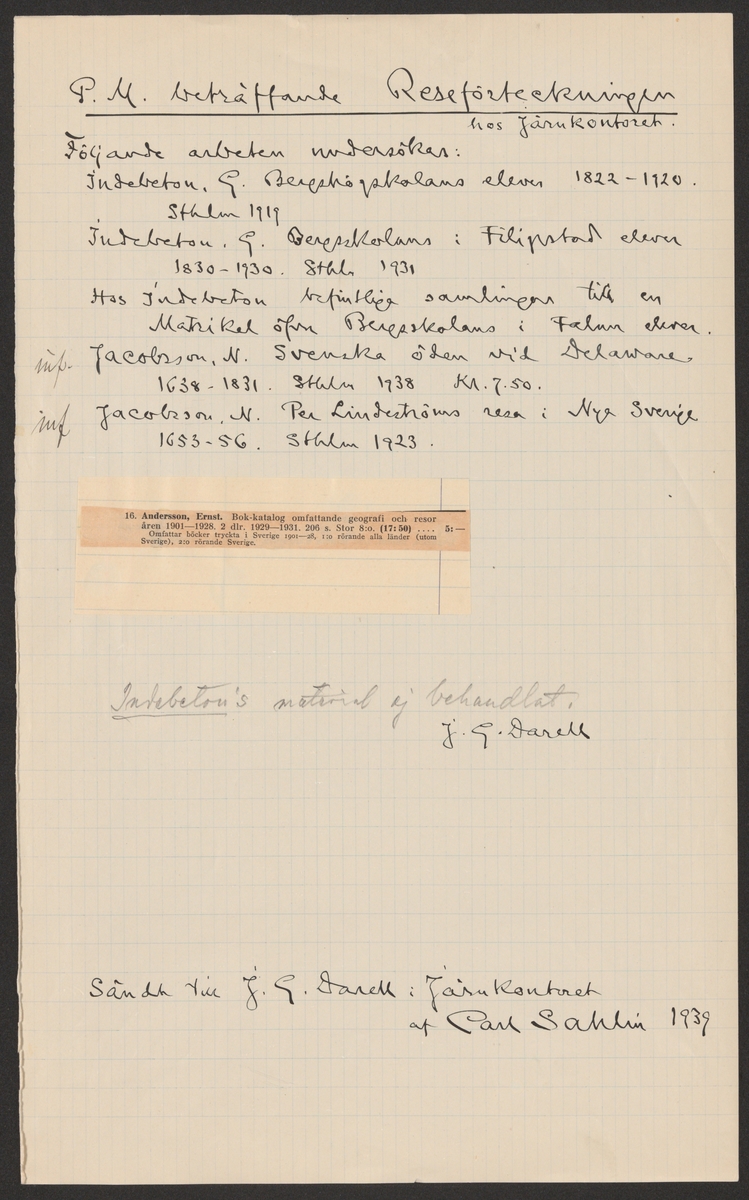 P. M. beträffande Reseförteckningen
hos Järnkontoret.
Följande arbeten undersökas:
Indebetou, G. Bergshögskolans elever 1822-1920.
Sthlm 1919
Indebetou, G. Bergsskolans i Filipstad elever
1830-1930. Sthlm 1931
Hos Indebetou befintliga samlingar till en
Matrikel öfver Bergsskolans i Falun elever.
inf. Jacobsson, N. Svenska öden vid Delaware
1638-1831. Sthlm 1938 Kr. 7.50.
inf Jacobsson, N. Per Lindeströms resa i Nya Sverige
1653-56. Sthlm 1923.
16. Andersson, Ernst. Bok-katalog omfattande geografi och resor
åren 1901—1928. 2 dlr. 1929—1931. 206 s. Stor 8:o. (17:50) .... 5:—
Omfattar böcker tryckta i Sverige 1901—28, 1:o rörande alla länder (utom
Sverige), 2:o rörande Sverige.
Indebetou's material ej behandlat.
J. G. Darell
Sändt till J. G. Darell i Järnkontoret
af Carl Sahlin 1939